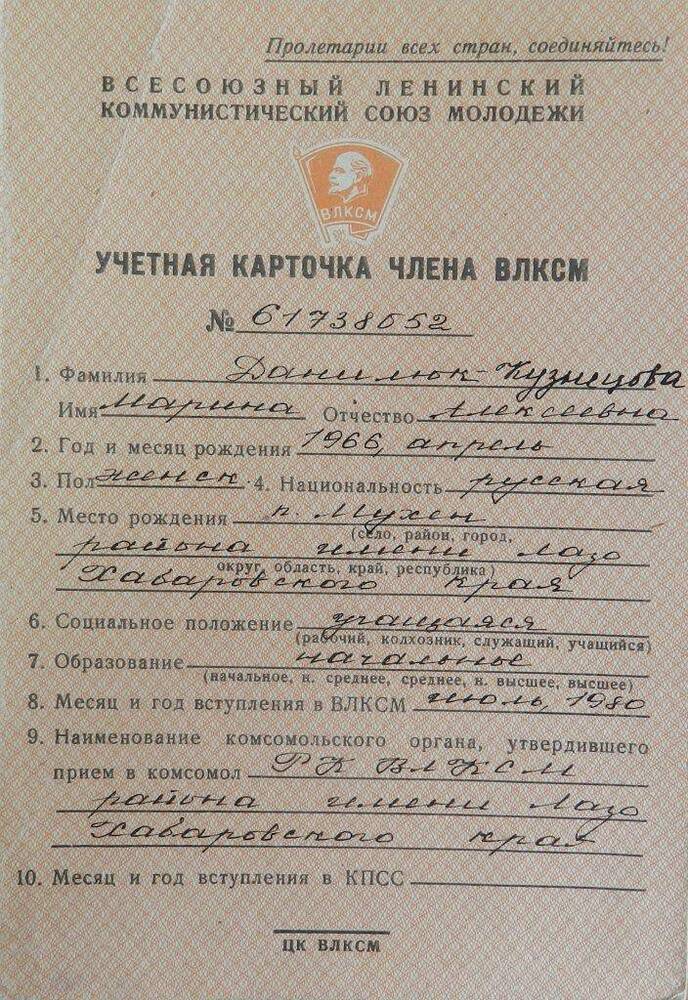 Пролетарии всех стран, соединяйтесь!
ВСЕСОЮЗНЫЙ ЛЕНИНСКИЙ
КОММУНИСТИЧЕСКИЙ СОЮЗ МОЛОДЕЖИ
ВЛКСМ
УЧЕТНАЯ КАРТОЧКА ЧЛЕНА ВЛКСМ
№ 61738552
1. Фамилия Данилюк-Кузнецова
Имя Марина Отчество Алексеевна
2. Год и месяц рождения 1966, апрель
3. Пол женск 4. Национальность русская
5. Место рождения п. Мухен
(село, район, город,
района имени Лазо
округ, область, край, республика)
Хабаровского края
6. Социальное положение учащаяся
(рабочий, колхозник, служащий, учащийся)
7. Образование начальное
(начальное, н. среднее, среднее, н. высшее, высшее)
8. Месяц и год вступления в ВЛКСМ июль, 1980
9. Наименование комсомольского органа, утвердившего
прием в комсомол РК ВЛКСМ
района имени Лазо
Хабаровского края
10. Месяц и год вступления в КПСС
ЦК ВЛКСМ